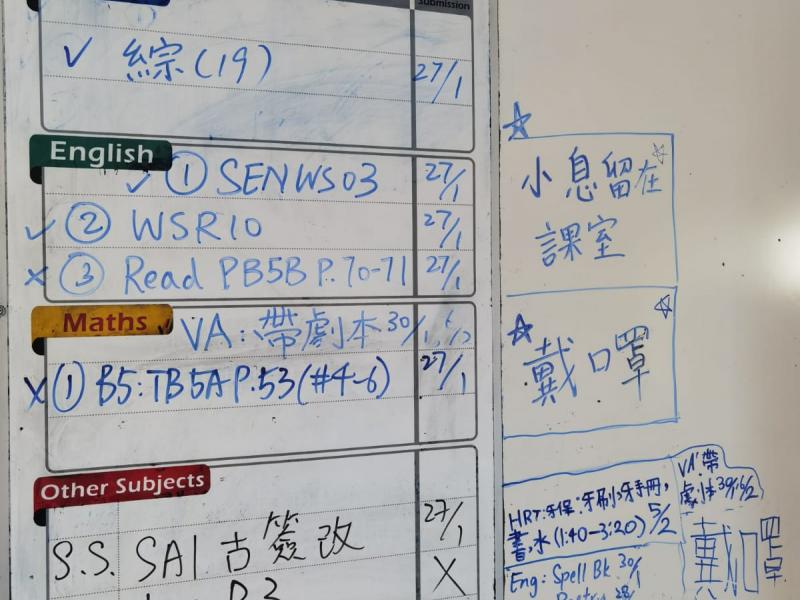 Submission
✓ 綜(19) 27/1
English
✓ ① SENWS03 27/1
✓ ② WSR10 27/1
× ③ Read PB5B P.70-71 27/1
Maths
VA: 帶劇本 30/1, 6/2
× ① B5: TB5A P.53 (#4-6) 27/1
Other Subjects
S.S. SA1 古簽改 27/1
X
☆
小息留在
課室
戴口罩
HRT: 牙保: 牙刷, 牙手冊,
書, 水 (1:40-3:20) 5/2
VA: 帶
劇本 30/1, 6/2
戴口罩
Eng: Spell Bk 30/1